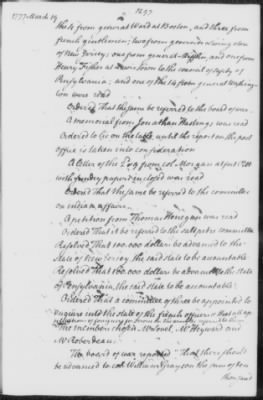 1777 March 19
1697
the 14 from general Ward at Boston, and three from
french gentlemen; two from governor Livingston
of New Jersey; one from general Mifflin, and one from
Henry Fisher at Lewistown to the council of safety of
Pensylvania; and one of the 14 from general Washing-
ton were read
Ordered That the same be referred to the board of war.
A memorial from Jonathan Hastings was read
Ordered to lie on the table until the report on the post
office is taken into consideration
A letter of the from col Morgan at fort Pitt
with sundry papers inclosed was read
Ordered That the same be referred to the committee
on indian affairs.
A petition from Thomas Henegan was read
Ordered That it be referred to the
Resolved That 100.000 dollars be advanced to the
state of New Jersey, the said state to be accountable
Resolved That 100.000 dollars be advanced to the state
of Pensylvania, the said state to be accountable:
Ordered That a committee of three be appointed to
enquire into the state of the french officers
The members chosen, Mr Heyward and
Mr Roberdeau.
The board of war reported "That there should
be advanced to col William Grayson the sum of ten
thousand